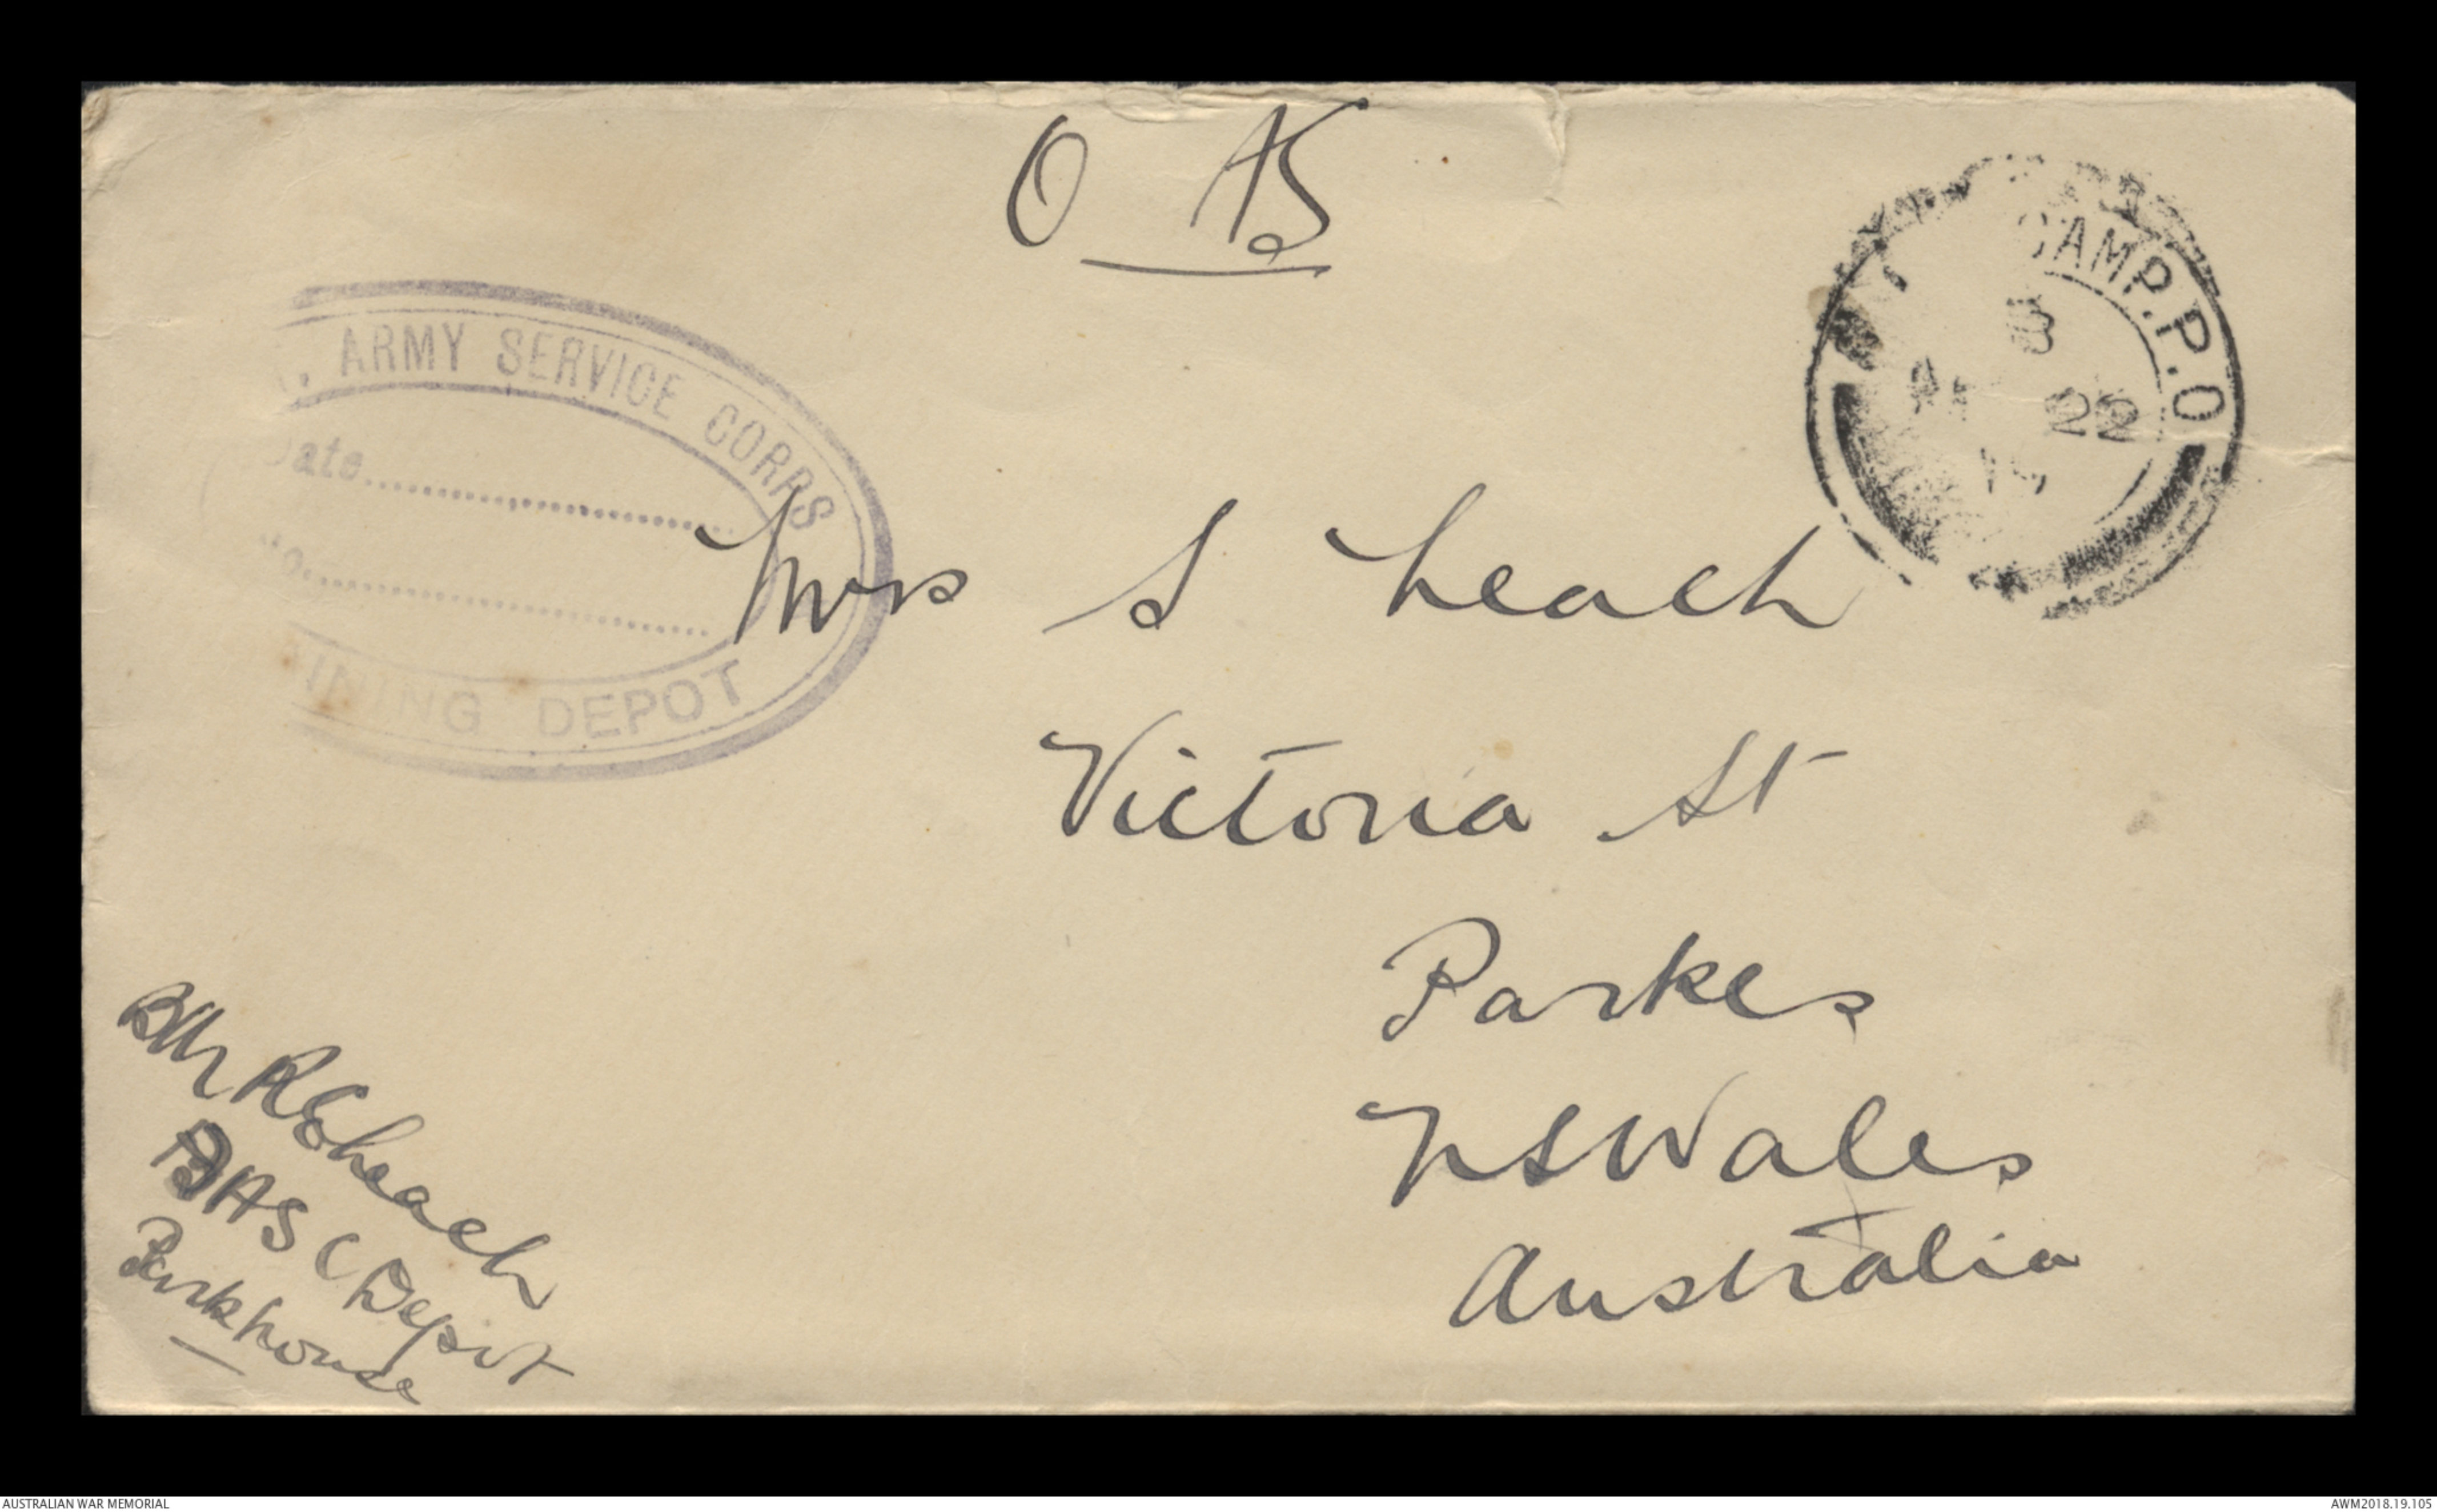 O AS
ARMY SERVICE CORPS
Date
DEPOT
CAMP.P.O
22
Mrs S Leach
Victoria St
Parkes
NSWales
Australia
RELeach
ASC Depot
Parkhouse
AUSTRALIAN WAR MEMORIAL
AWM2018.19.105